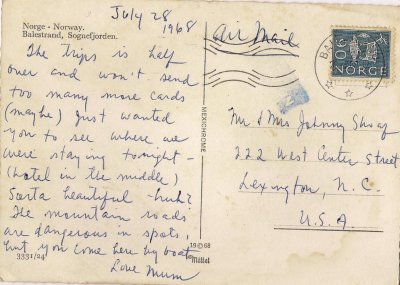 July 28
1968
Norge - Norway.
Balestrand, Sognefjorden.
Air Mail
The trips is half
over and won't send
too many more cards
(maybe) Just wanted
you to see where we
were staying tonight -
(hotel in the middle)
Sorta beautiful - huh?
The mountain roads
are dangerous in spots,
but you come here by boat.
Love Mum
3331/24
MEXICHROME
19 © 68
Mittet
BA
NORGE
90
Mr & Mrs Johnny Shoaf
222 West Center Street
Lexington, N. C.
U.S.A.